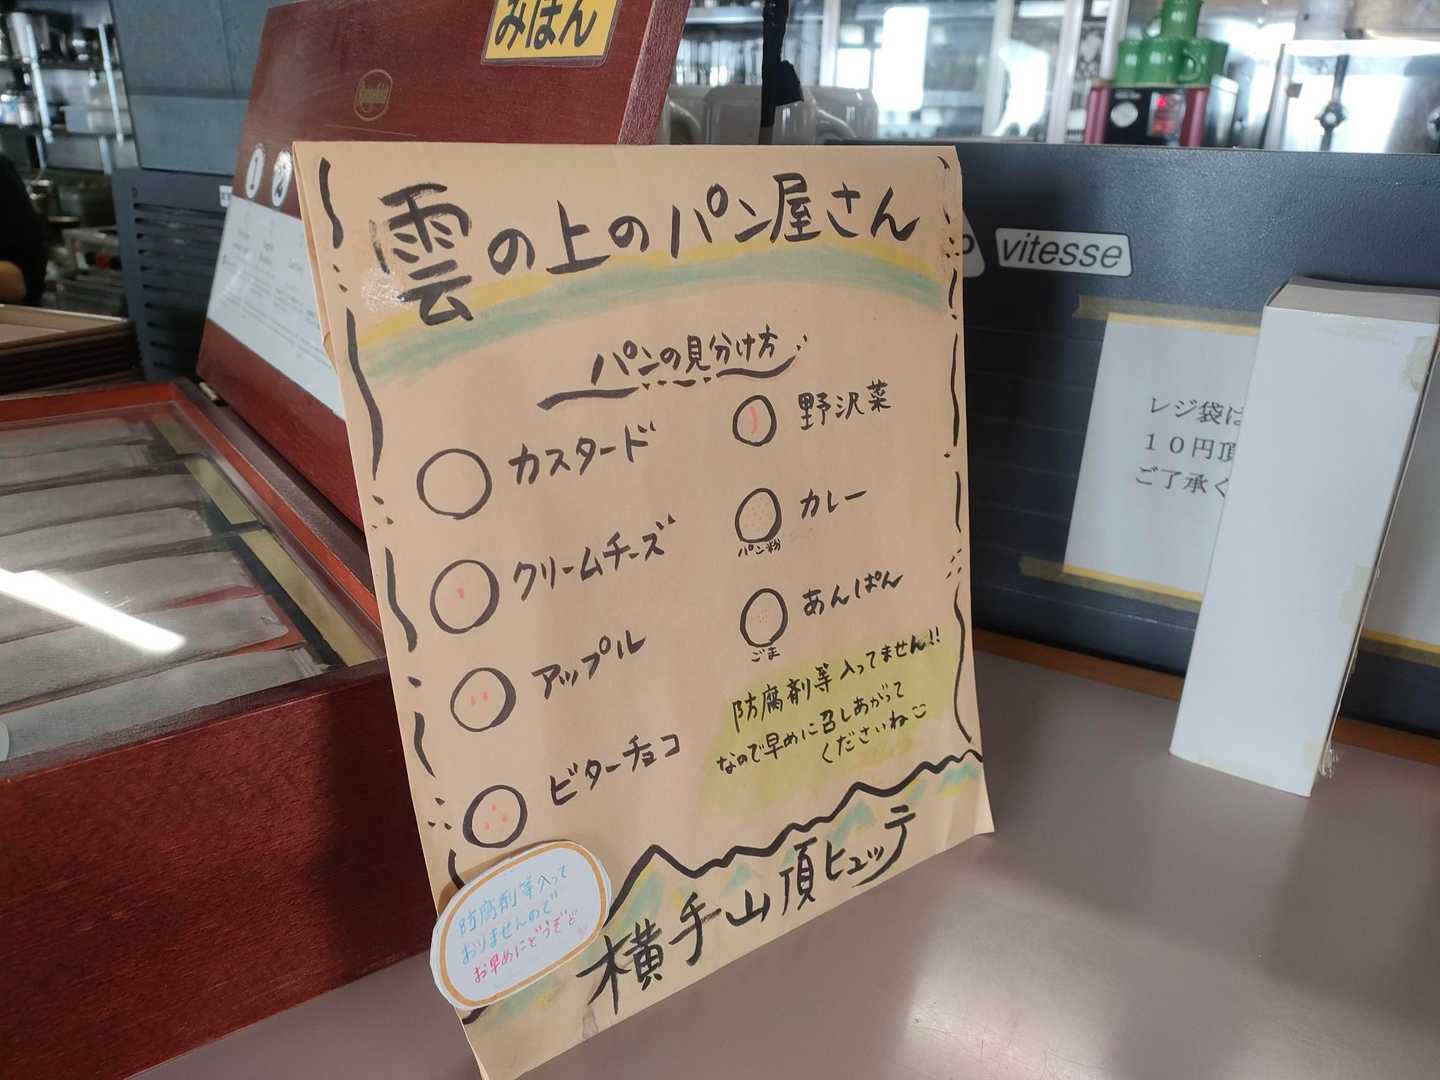 みほん
雲の上のパン屋さん
パンの見分け方
カスタード
クリームチーズ
アップル
ビターチョコ
野沢菜
カレー
パン粉
あんぱん
ごま
防腐剤等入ってません!!
なので早めに召しあがって
くださいね
横手山頂ヒュッテ
防腐剤等入って
おりませんので
お早めにどうぞ
vitesse
レジ袋は
10円頂
ご了承く